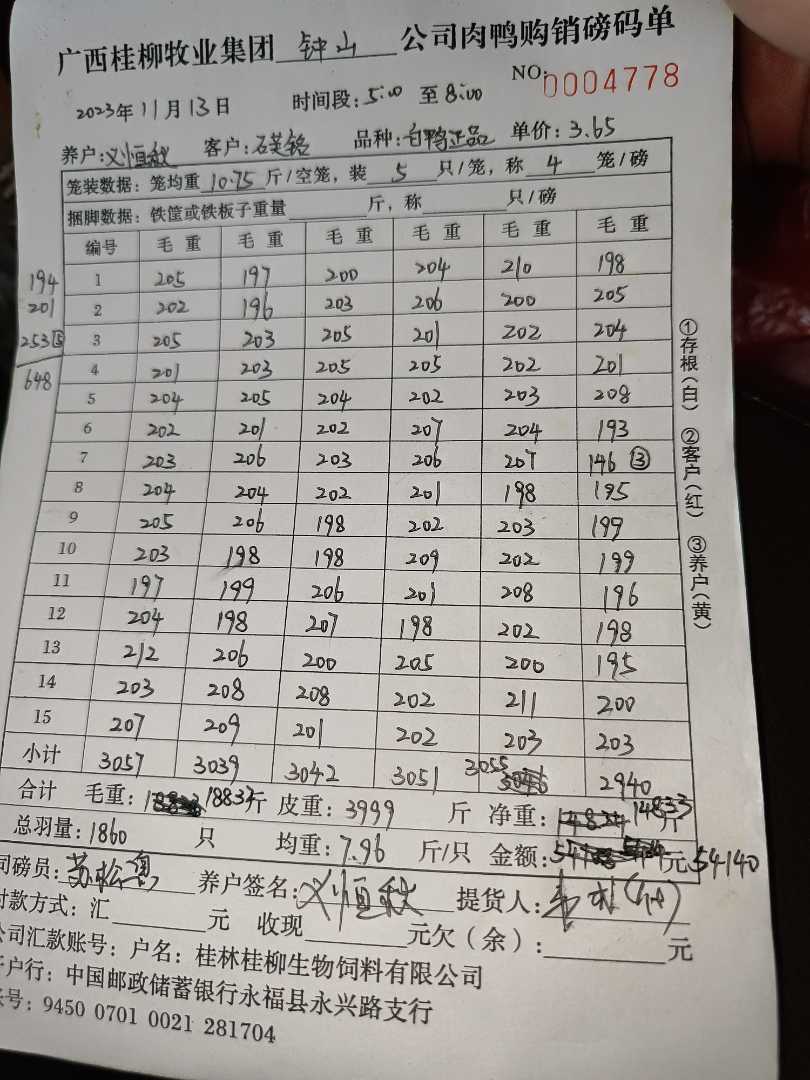 广西桂柳牧业集团 钟山 公司肉鸭购销磅码单
2023年11月13日 时间段:5:00 至8:00 NO:0004778
养户:义恒秋 客户:石芙铭 品种:白鸭正品 单价:3.65
笼装数据:笼均重10.75斤/空笼,装5只/笼,称4笼/磅
捆脚数据:铁筐或铁板子重量 斤,称 只/磅
编号 毛重 毛重 毛重 毛重 毛重 毛重
1 205 197 200 204 210 198
2 202 196 203 206 200 205
3 205 203 205 201 202 204
4 201 203 205 205 202 201
5 204 205 204 202 203 208
6 202 201 202 207 204 193
7 203 206 203 206 207 146 ③
8 204 204 202 201 198 195
9 205 206 198 202 203 199
10 203 198 198 209 202 199
11 197 199 206 201 208 196
12 204 198 207 198 202 198
13 212 206 200 205 200 195
14 203 208 208 202 211 200
15 207 209 201 202 203 203
小计 3057 3039 3042 3051 3055 2940
合计 毛重:18832斤 皮重:3999斤 净重:14833斤
总羽量:1860只 均重:7.96斤/只 金额:元54140
司磅员:苏松 养户签名:义恒秋 提货人:
付款方式:汇 元 收现 元欠(余): 元
公司汇款账号:户名:桂林桂柳生物饲料有限公司
开户行:中国邮政储蓄银行永福县永兴路支行
账号:9450 0701 0021 281704
194
201
253⑤
648
①存根(白) ②客户(红) ③养户(黄)